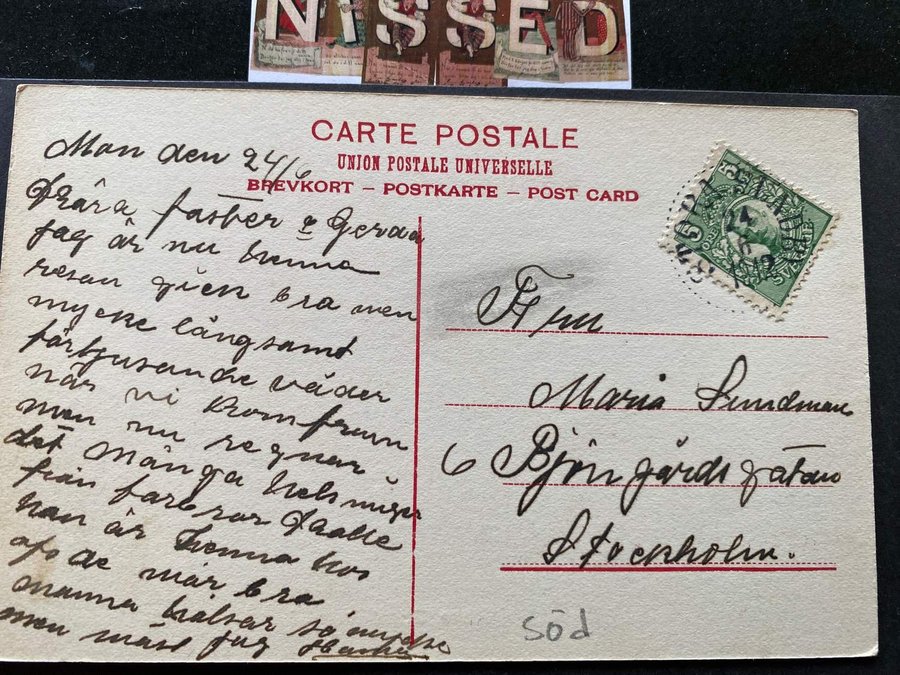 NISSED
CARTE POSTALE
UNION POSTALE UNIVERSELLE
BREVKORT – POSTKARTE – POST CARD
Man den 24/6
Kära faster o Gerda
jag är nu hemma
resan gick bra men
mycke långsamt
förtjusande väder
när vi kom fram
men nu regnar
det många helsninger
från farbror Kalle
han är hemma hos
oss de mår bra
mamma helsar så mycke
men mäst jag
Fru
Maria Sundman
6 Björngårdsgatan
Stockholm.
SÖD